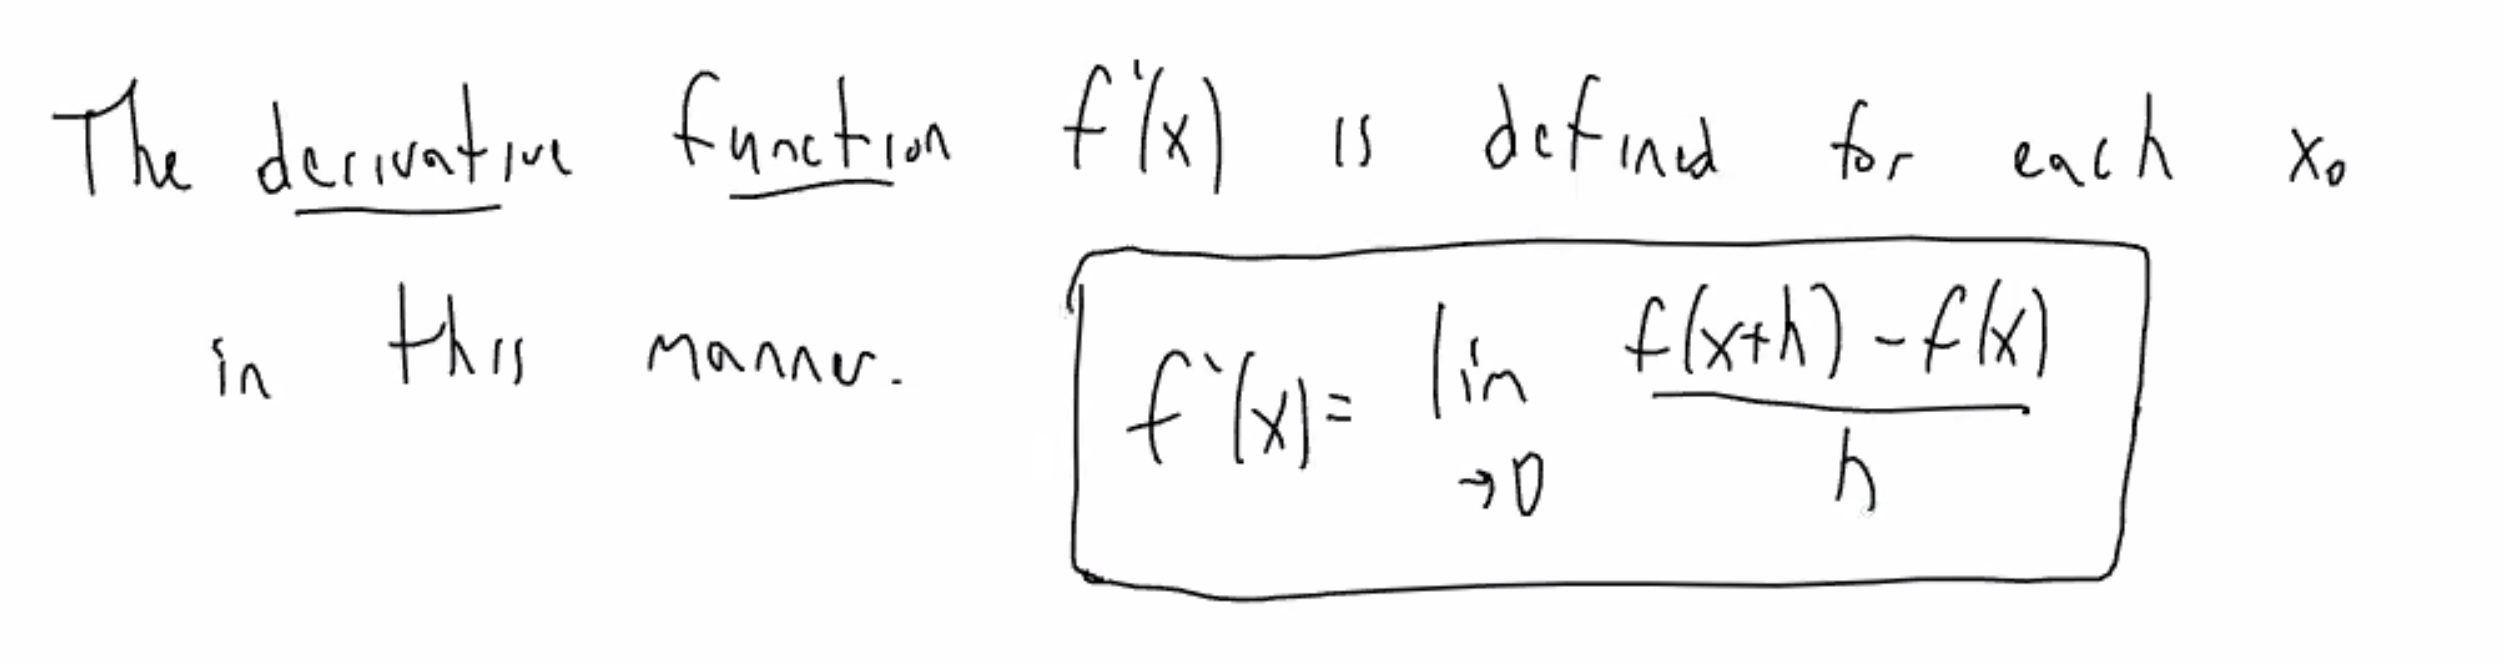 The derivative function f'(x) is defined for each x₀
in this manner.
f'(x) = lim →0 f(x+h) - f(x) / h